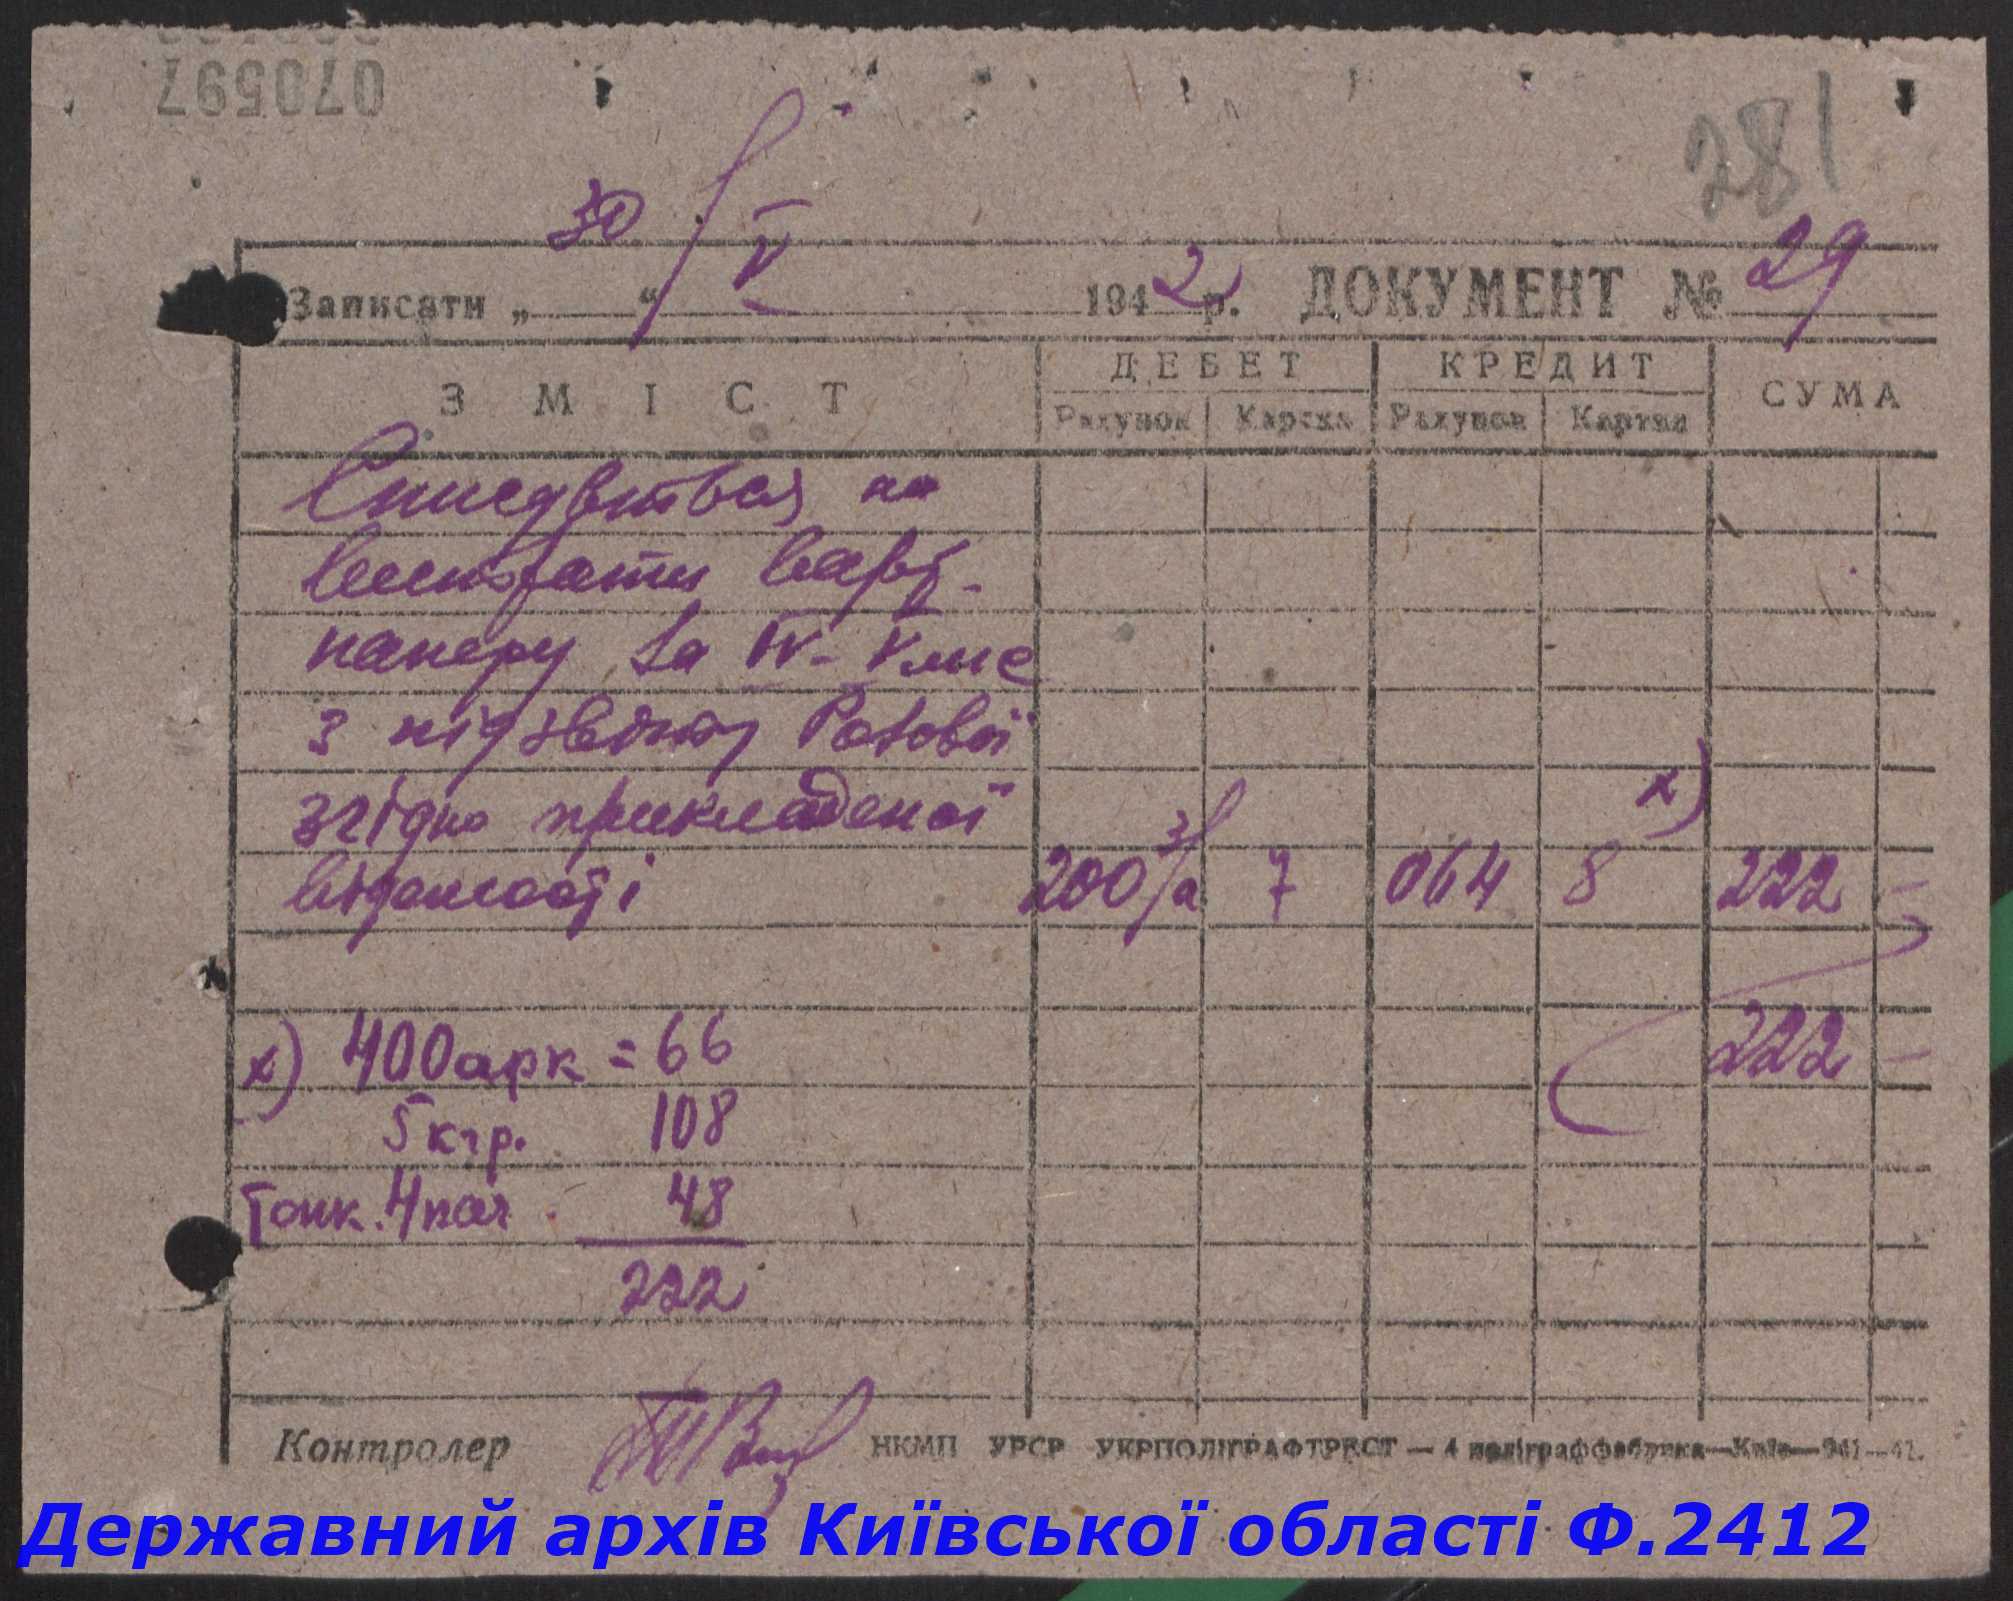 070597
281
Записати „ 30 “ V 1942 р. ДОКУМЕНТ № 29
ЗМІСТ ДЕБЕТ КРЕДИТ СУМА
Рахунок Картка Рахунок Картка
Списується на
витрати варт.
паперу за IV-V міс
з під звіту
згідно прикладеної
відомості 200 3/а 7 064 8 х) 222 -
222 -
х) 400 арк = 66
5 кгр. 108
Тонк. 4 пач 48
222
Контролер НКМП УРСР УКРПОЛІГРАФТРЕСТ — 4 поліграффабрика — Київ — 941 — 41.
Державний архів Київської області Ф.2412